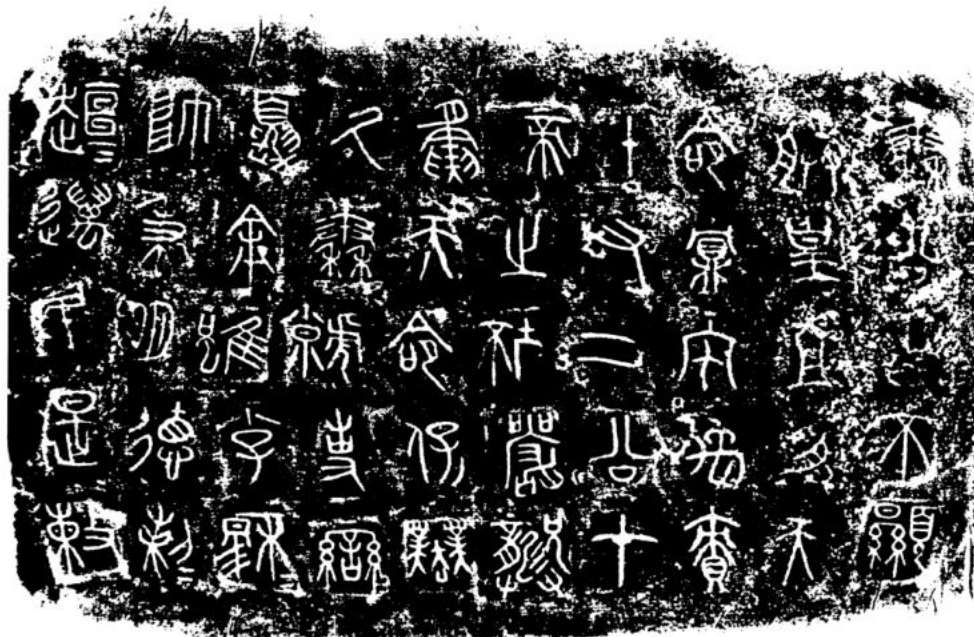 秦公曰不顯
朕皇且受天
命鼏宅禹責
十又二公才
帝之坯嚴龏
夤天命保業
氒秦虩事䜌
夏余雖小子穆
帥秉明德剌
趄邁民是敕